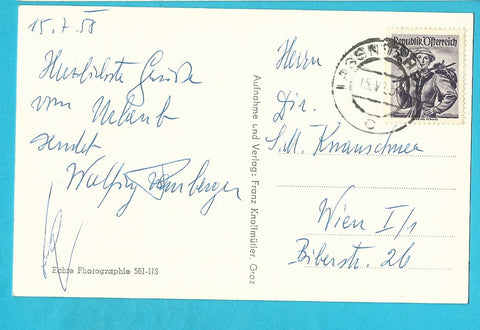 15.7.58
Herzlichste Grüße
vom Urlaub
sendet
Echte Photographie 561-113
Aufnahme und Verlag: Franz Knollmüller, Graz
Herrn
Dir.
S.M. Knauschner
Wien I/1
Biberstr. 26
Republik Österreich